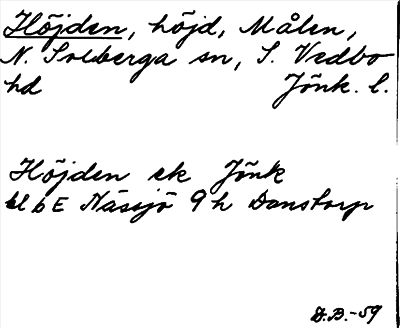 Höjden, höjd, Målen,
N. Solberga sn, S. Vedbo
hd Jönk. l.
Höjden ek Jönk
bl 6E Nässjö 9h Danstorp
D.B.-59